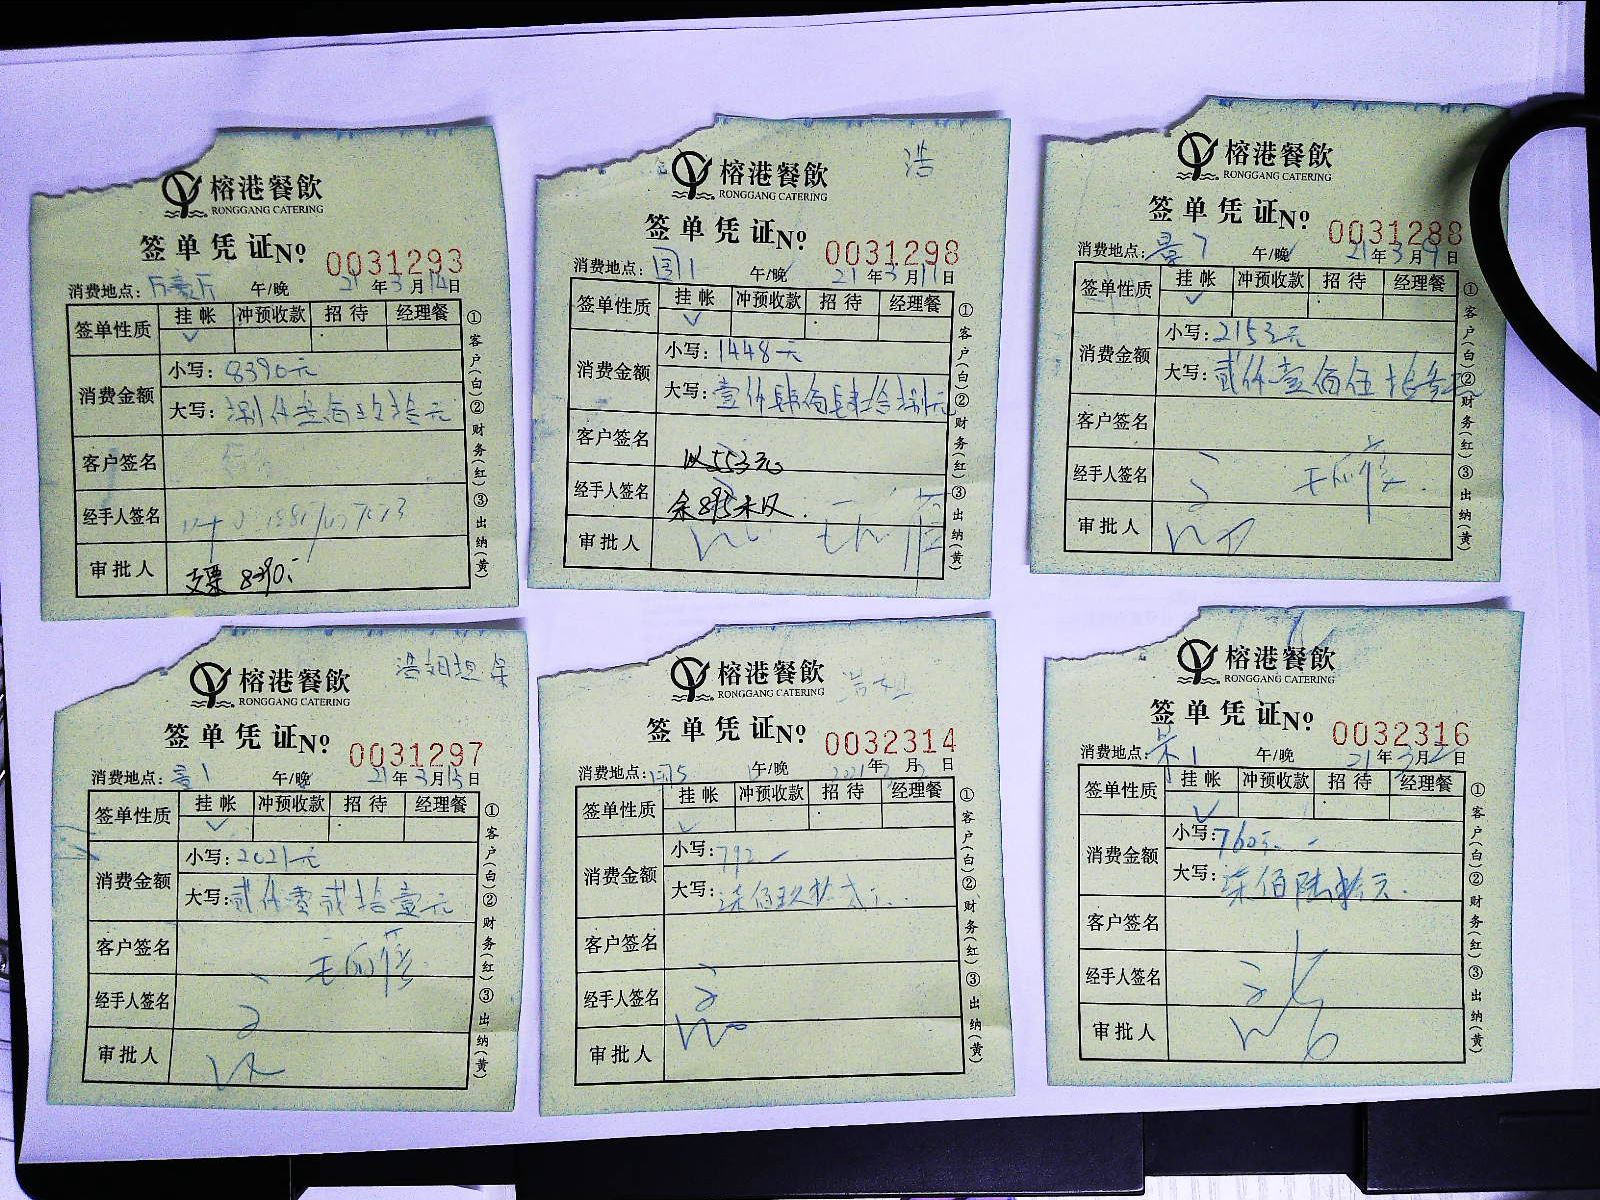 榕港餐飲
RONGGANG CATERING
签单凭证№ 0031293
消费地点: 午/晚 21年3月14日
签单性质 挂帐 冲预收款 招待 经理餐
✓
消费金额 小写: 8390元
大写: 捌仟叁佰玖拾元
客户签名
经手人签名
审批人 支票 8390.
①客户(白)②财务(红)③出纳(黄)
浩
榕港餐飲
RONGGANG CATERING
签单凭证№ 0031298
消费地点: 国1 午/晚 21年3月17日
签单性质 挂帐 冲预收款 招待 经理餐
✓
消费金额 小写: 1448元
大写: 壹仟肆佰肆拾捌元
客户签名 收553元
经手人签名 余895未收
审批人
①客户(白)②财务(红)③出纳(黄)
榕港餐飲
RONGGANG CATERING
签单凭证№ 0031288
消费地点: 景7 午/晚 21年3月9日
签单性质 挂帐 冲预收款 招待 经理餐
✓
消费金额 小写: 2153元
大写: 贰仟壹佰伍拾叁元
客户签名
经手人签名
审批人
①客户(白)②财务(红)③出纳(黄)
浩姐担保
榕港餐飲
RONGGANG CATERING
签单凭证№ 0031297
消费地点: 景1 午/晚 21年3月15日
签单性质 挂帐 冲预收款 招待 经理餐
✓
消费金额 小写: 2021元
大写: 贰仟零贰拾壹元
客户签名
经手人签名
审批人
①客户(白)②财务(红)③出纳(黄)
浩姐
榕港餐飲
RONGGANG CATERING
签单凭证№ 0032314
消费地点: 国5 午/晚 2021年 月 日
签单性质 挂帐 冲预收款 招待 经理餐
✓
消费金额 小写: 792
大写: 柒佰玖拾贰元
客户签名
经手人签名
审批人
①客户(白)②财务(红)③出纳(黄)
榕港餐飲
RONGGANG CATERING
签单凭证№ 0032316
消费地点: 景1 午/晚 21年3月2日
签单性质 挂帐 冲预收款 招待 经理餐
✓
消费金额 小写: 760元
大写: 柒佰陆拾元
客户签名
经手人签名
审批人
①客户(白)②财务(红)③出纳(黄)